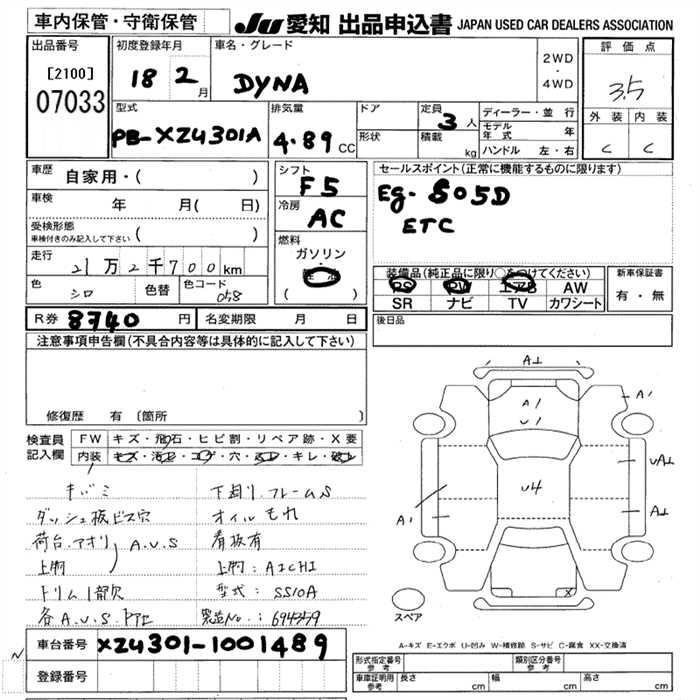 車内保管・守衛保管
JU 愛知 出品申込書 JAPAN USED CAR DEALERS ASSOCIATION
出品番号
[2100]
07033
初度登録年月
18 2月
車名・グレード
DYNA
2WD
・
4WD
評価点
3.5
外装 内装
C C
型式
PB-XZU301A
排気量
4.89 CC
ドア
形状
定員 3人
積載 kg
ディーラー・並行
モデル年式 年
ハンドル 左・右
車歴 自家用・( )
車検 年 月( 日)
受検形態
車検付きのみ記入して下さい ( )
走行 21万2千700km
色 シロ 色替 色コード 058
シフト
F5
冷房
AC
燃料
ガソリン
・
軽油
( )
セールスポイント(正常に機能するものに限ります)
Eg-S05D
ETC
装備品(純正品に限り○をつけてください)
PS PW エアB AW
SR ナビ TV カワシート
新車保証書
有・無
R券 8740円 名変期限 月 日
後日品
注意事項申告欄(不具合内容等は具体的に記入して下さい)
修復歴 有 〔箇所 〕
検査員記入欄
FW キズ・飛石・ヒビ割・リペア跡・X要
内装 キズ・汚レ・コゲ・穴・スレ・キレ・破レ
キバミ
ダッシュ板ビス穴
荷台.アオリ
上物
A.U.S
トリム1部欠
各A.U.S.
下廻リ.フレームS
オイルもれ
看板有
上物:AICHI
型式:SS10A
製造No.:694359
A⊥
A1
U1
A1
U4
UA⊥
A⊥
A1
X
スペア
A-キズ E-エクボ U-凹み W-補修跡 S-サビ C-腐食 XX-交換済
車台番号 XZU301-1001489
登録番号
N
形式指定番号
参考
類別区分番号
参考
車庫証明用
参考
長さ cm 幅 cm 高さ cm